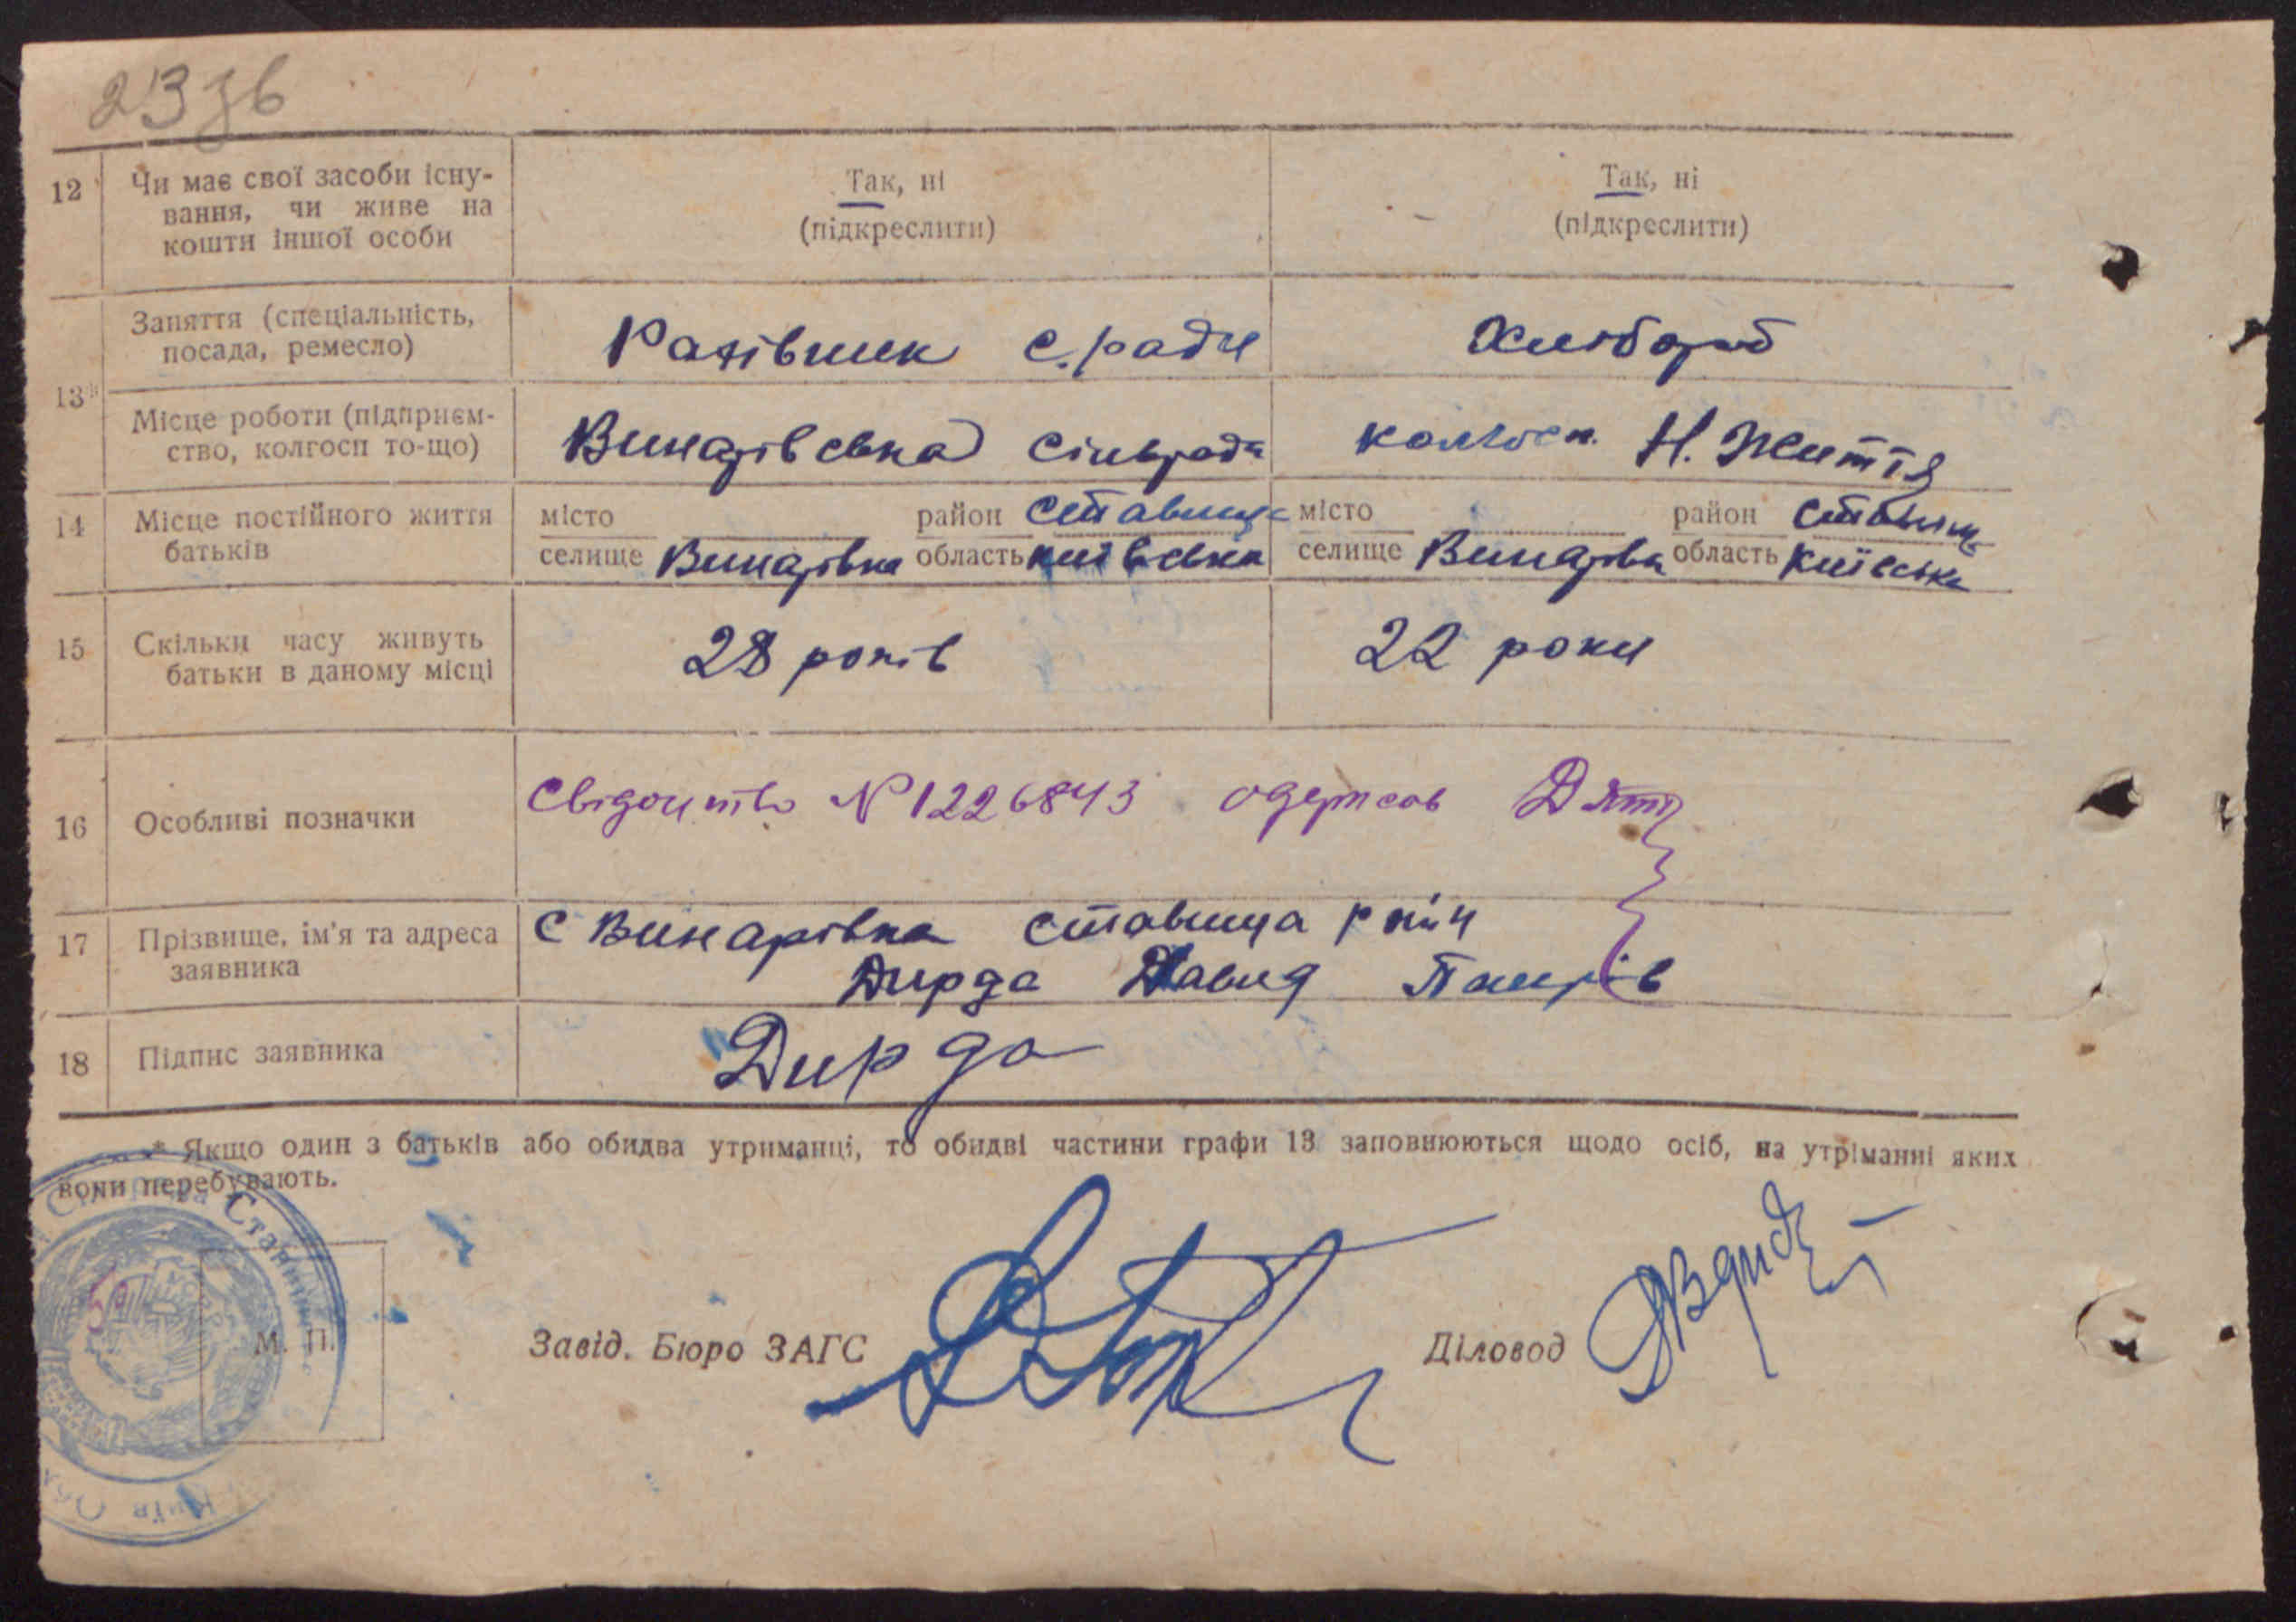 23 зв
12 Чи має свої засоби існу-
вання, чи живе на
кошти іншої особи
Так, ні
(підкреслити)
Так, ні
(підкреслити)
13* Заняття (спеціальність,
посада, ремесло)
с. ради
Хлібороб
Місце роботи (підприєм-
ство, колгосп то-що)
Винарівська сільрада
колгосп. Н. Життя
14 Місце постійного життя
батьків
місто район Ставище
селище Винарівка область київська
місто район Ставищ
селище Винарівка область Київська
15 Скільки часу живуть
батьки в даному місці
28 років
22 роки
16 Особливі позначки
Свідоцтво № 1226843 одержав
17 Прізвище, ім'я та адреса
заявника
с Винарівка Ставища
Дирда Давид
18 Підпис заявника
Дирда
* Якщо один з батьків або обидва утриманці, то обидві частини графи 13 заповнюються щодо осіб, на утріманні яких
вони перебувають.
М. П.
Завід. Бюро ЗАГС
Діловод